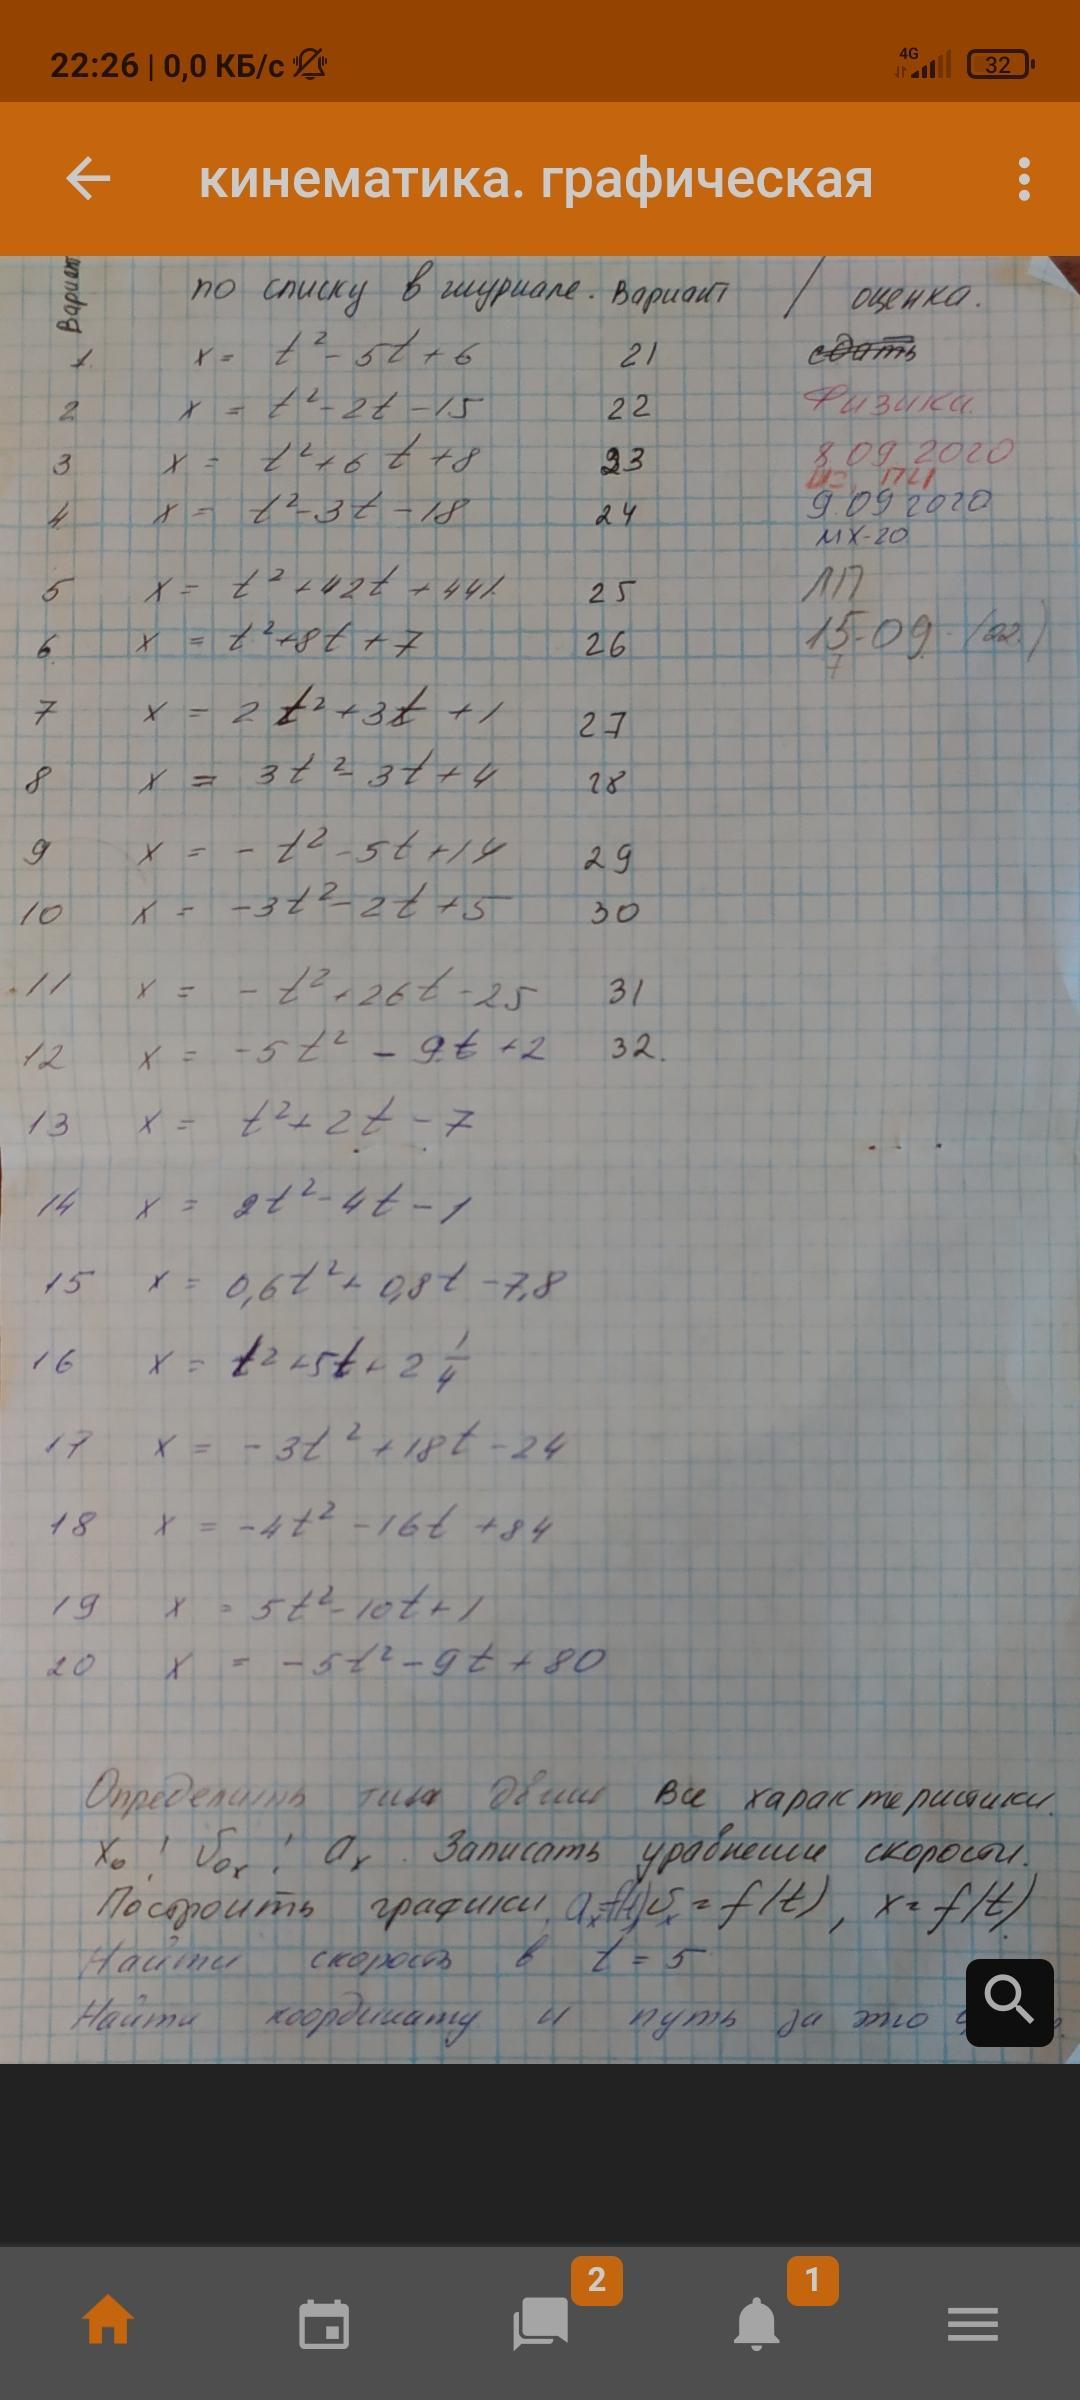 22:26 | 0,0 КБ/с
4G
32
кинематика. графическая
Вариант
по списку в журнале. Вариант / оценка.
1. x = t² - 5t + 6 21 сдать
2 x = t² - 2t - 15 22 Физика
3 x = t² + 6t + 8 23 8.09.2020
4 x = t² - 3t - 18 24 9.09 2020
МХ-20
5 x = t² + 42t + 441 25 ЛП
6 x = t² + 8t + 7 26 15-09
7
7 x = 2t² + 3t + 1 27
8 x = 3t² - 3t + 4 28
9 x = - t² - 5t + 14 29
10 x = -3t² - 2t + 5 30
11 x = - t² + 26t - 25 31
12 x = -5t² - 9t + 2 32.
13 x = t² + 2t - 7
14 x = 2t² - 4t - 1
15 x = 0,6t² + 0,8t - 7,8
16 x = t² + 5t + 2 1/4
17 x = - 3t² + 18t - 24
18 x = -4t² - 16t + 84
19 x = 5t² - 10t + 1
20 x = -5t² - 9t + 80
Определить тип движ Все характеристики.
x₀; υ₀ₓ; aₓ. Записать уравнение скорости.
Построить графики, aₓ=f(t) υₓ = f(t), x = f(t)
Найти скорость в t = 5
Найти координату и путь за это
2
1